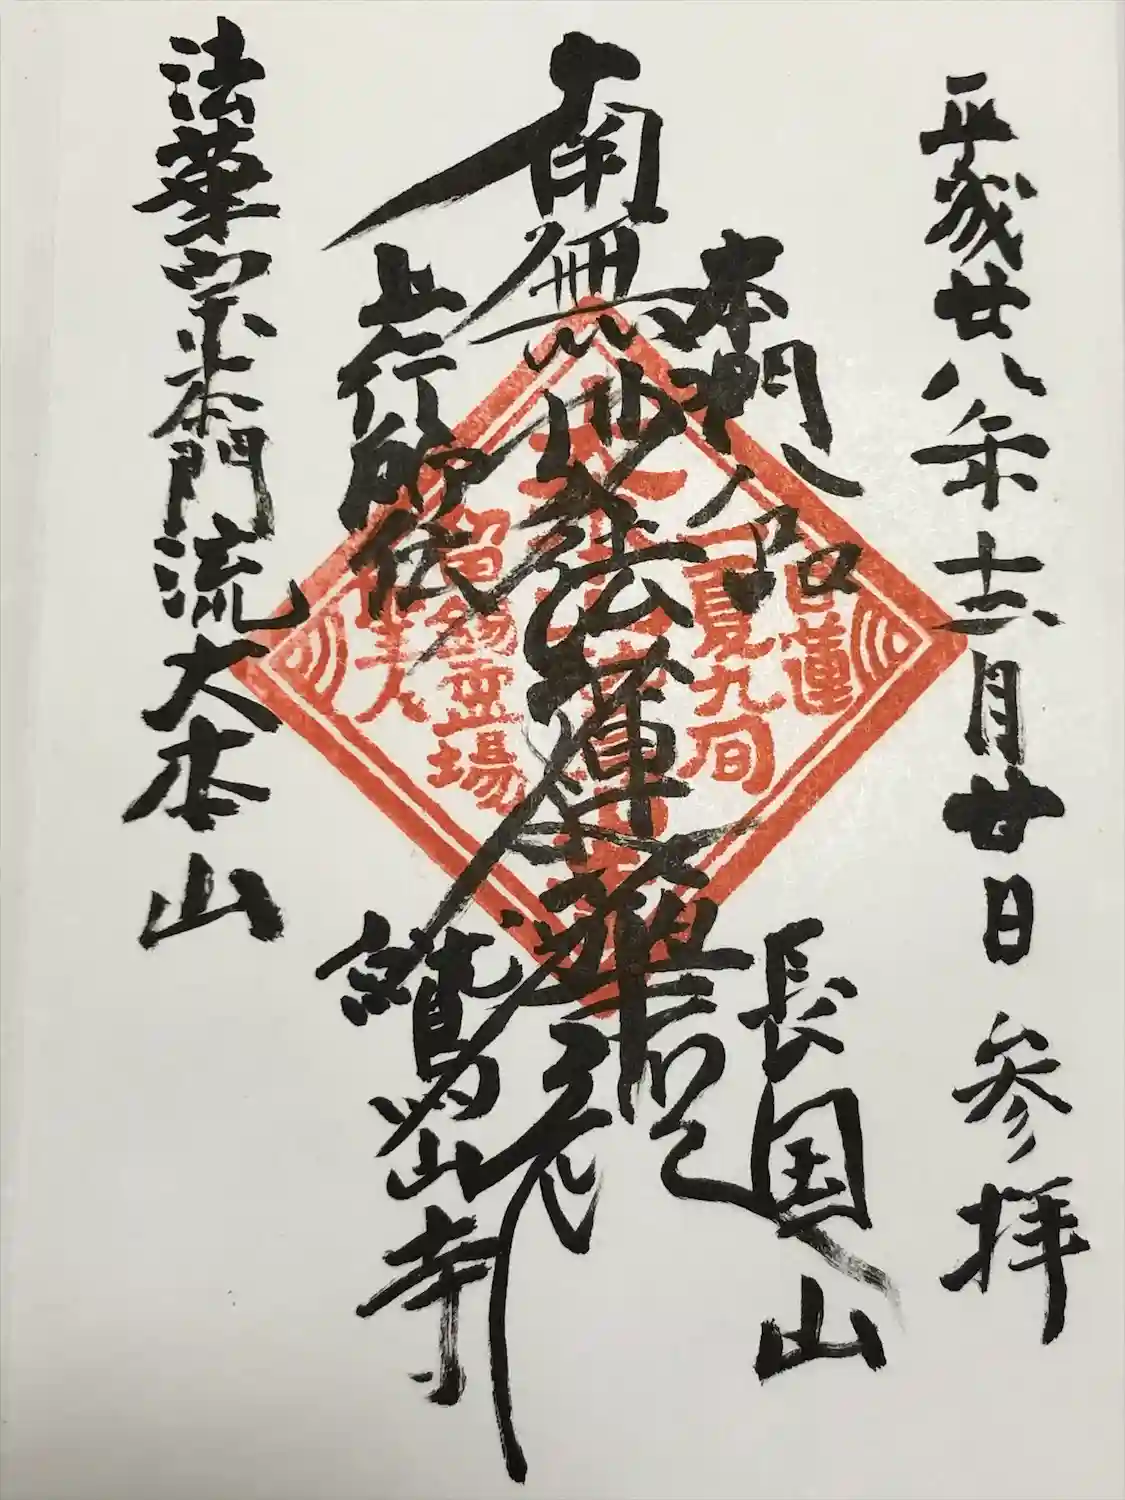 平成廿八年十二月廿日 参拝
本門八品
長国山
南無妙法蓮華経
上行所伝
鷲山寺
法華宗本門流大本山
日蓮
一夏九旬
留錫霊場